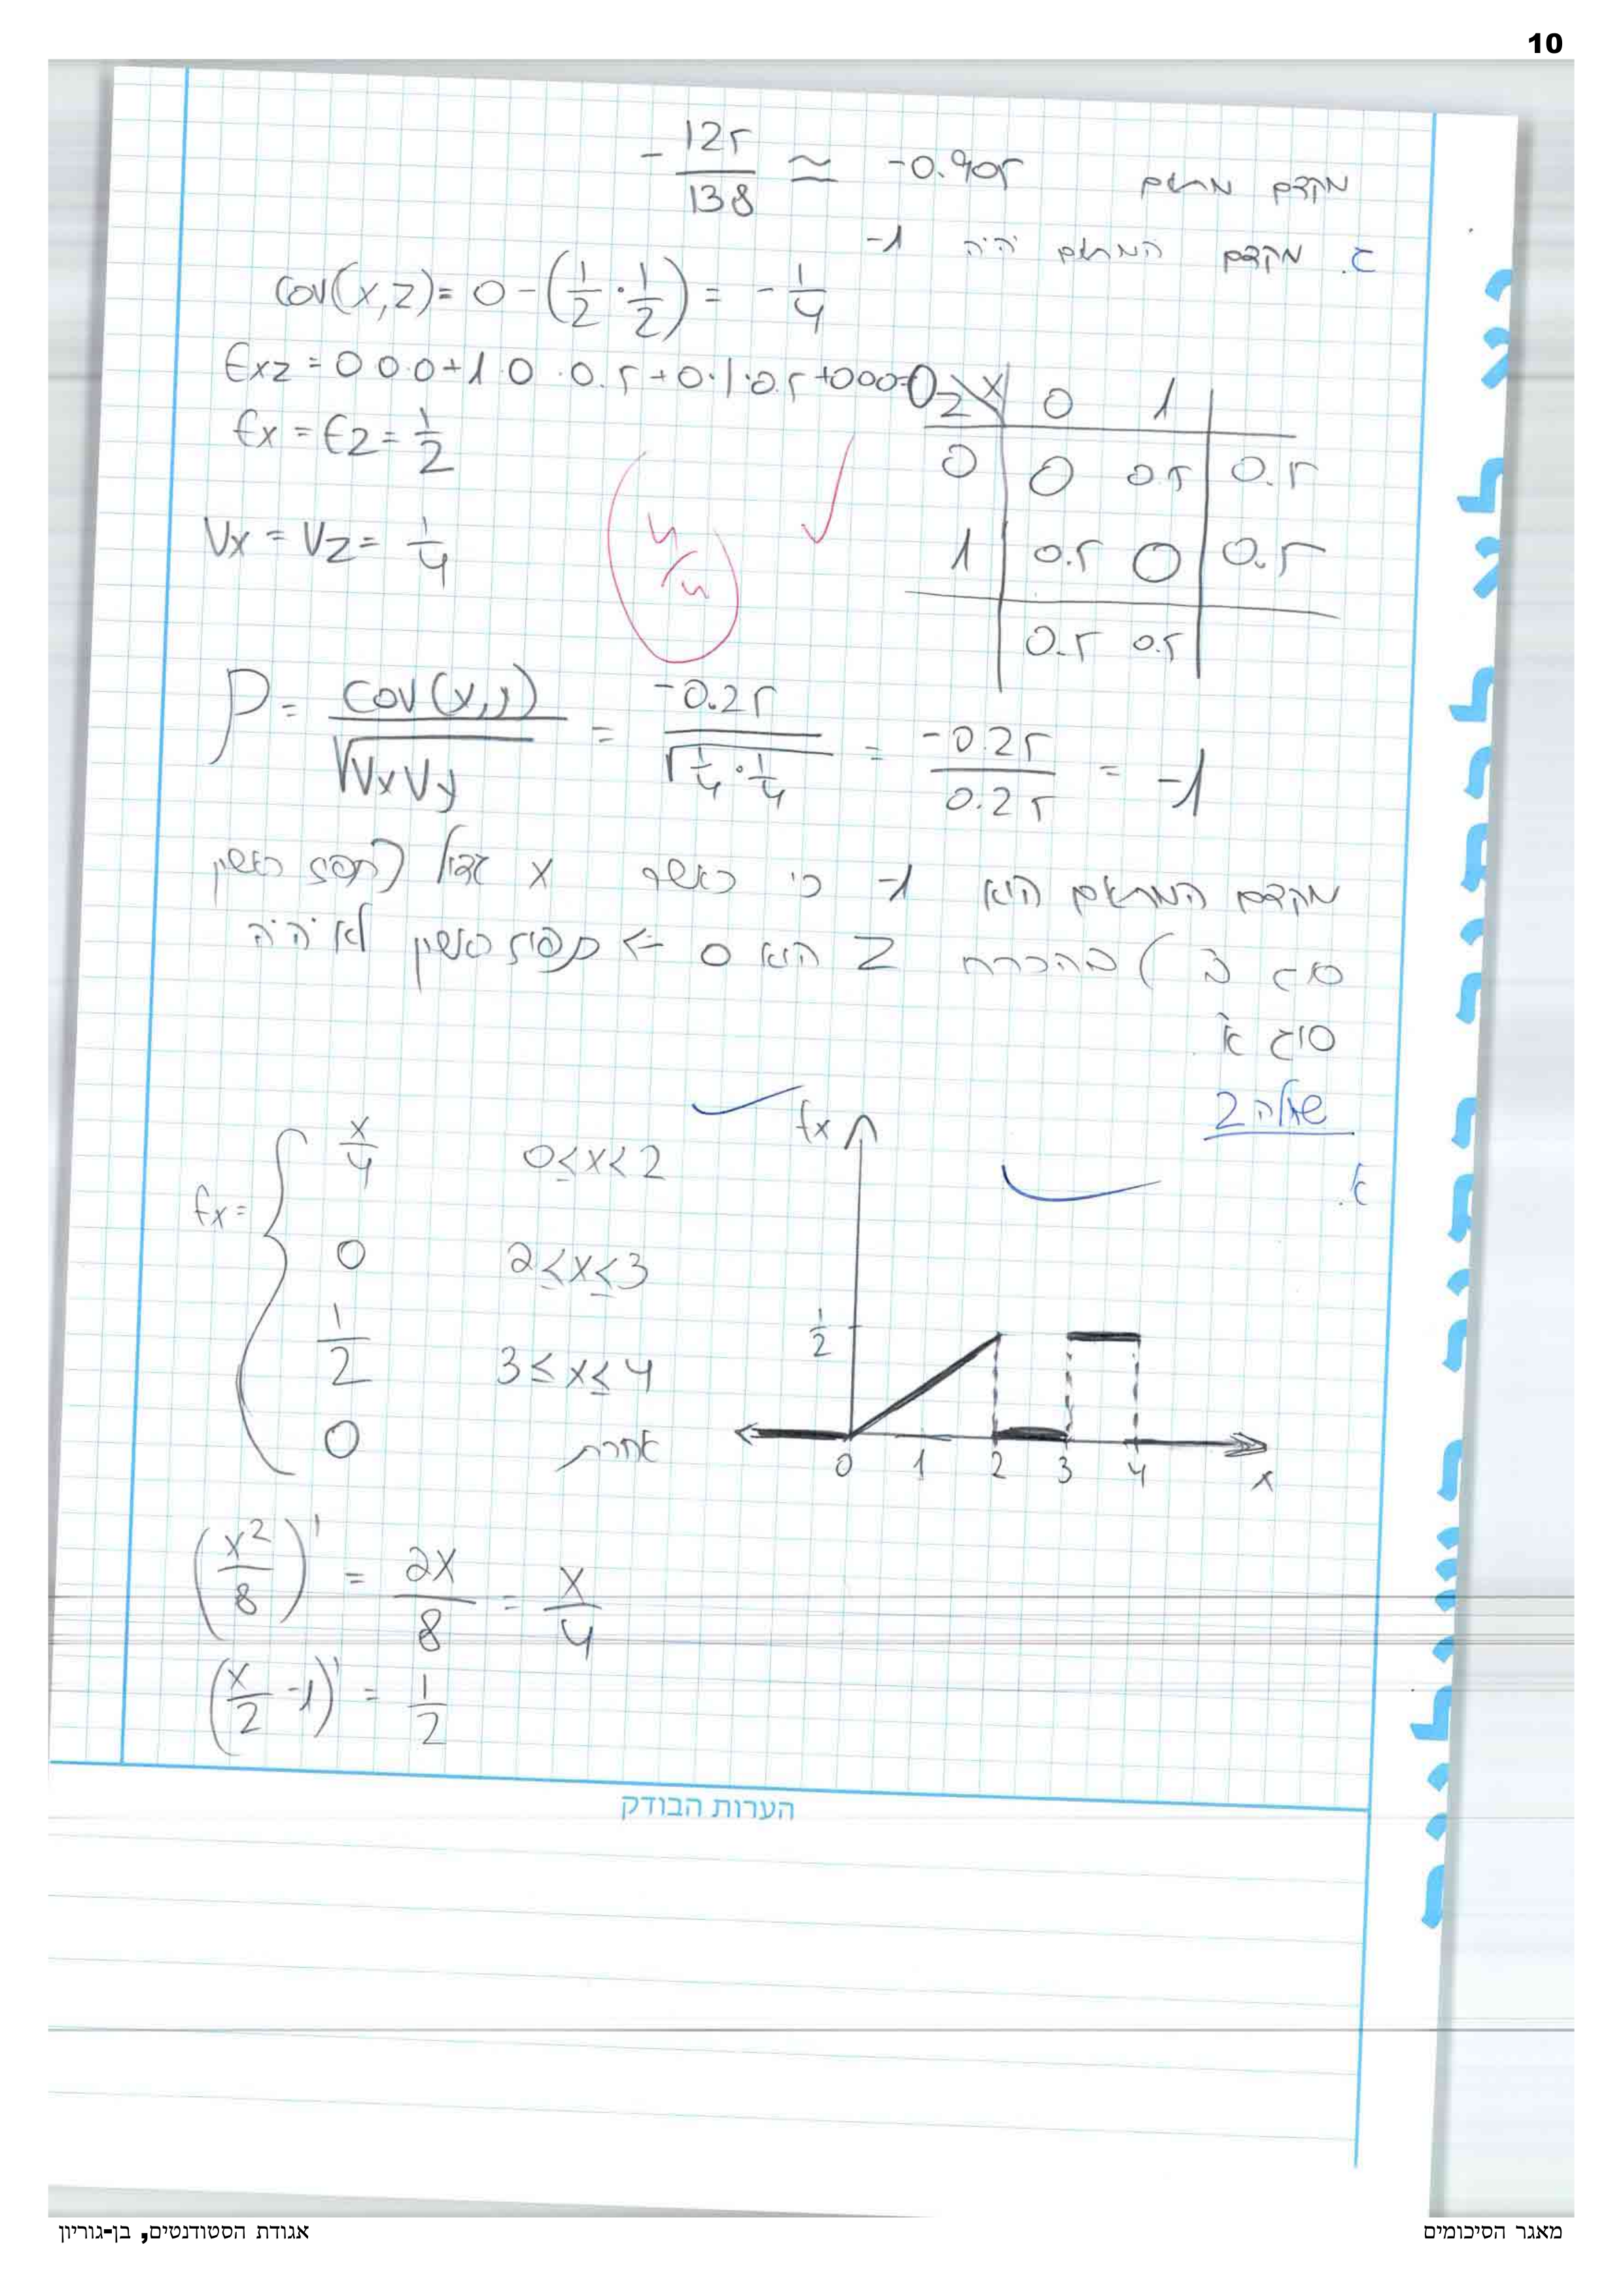 10
מקדם מתאם -125/138 ≃ -0.905
ג. מקדם המתאם יהיה -1
Cov(x,z) = 0 - (1/2 · 1/2) = -1/4
Exz = 0·0·0 + 1·0·0.5 + 0·1·0.5 + 0·0·0 = 0
Ex = Ez = 1/2
Vx = Vz = 1/4
z\x | 0 | 1 |
0 | 0 | 0.5 | 0.5
1 | 0.5 | 0 | 0.5
| 0.5 | 0.5 |
4/4
ρ = cov(x,y)/√VxVy = -0.25/√(1/4 · 1/4) = -0.25/0.25 = -1
מקדם המתאם הוא -1 כי כאשר x גדול (תפוז ראשון
סוג ב) בהכרח z הוא 0 ← תפוז ראשון לא יהיה
סוג א'
שאלה 2
א.
fx = { x/4 0≤x<2
0 2≤x≤3
1/2 3≤x≤4
0 אחרת
fx
1/2
0 1 2 3 4 x
(x²/8)' = 2x/8 = x/4
(x/2 - 1)' = 1/2
הערות הבודק
מאגר הסיכומים
אגודת הסטודנטים, בן-גוריון